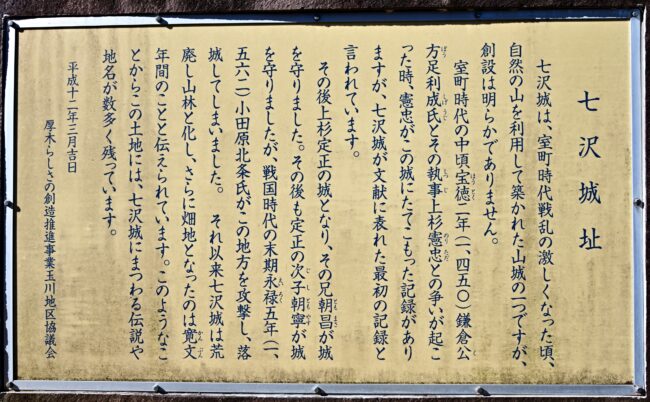 七沢城址
七沢城は、室町時代戦乱の激しくなった頃、
自然の山を利用して築かれた山城の一つですが、
創設は明らかでありません。
室町時代の中頃、宝徳二年(一、四五〇)鎌倉公
方足利成氏とその執事上杉憲忠との争いが起こ
った時、憲忠がこの城にたてこもった記録があり
ますが、七沢城が文献に表れた最初の記録と
言われています。
その後上杉定正の城となり、その兄朝昌が城
を守りました。その後も定正の次子朝寧が城
を守りましたが、戦国時代の末期永禄五年(一、
五六二)小田原北条氏がこの地方を攻撃し、落
城してしまいました。 それ以来七沢城は荒
廃し山林と化し、さらに畑地となったのは寛文
年間のことと伝えられています。このようなこ
とからこの土地には、七沢城にまつわる伝説や
地名が数多く残っています。
平成十二年三月吉日
厚木らしさの創造推進事業玉川地区協議会